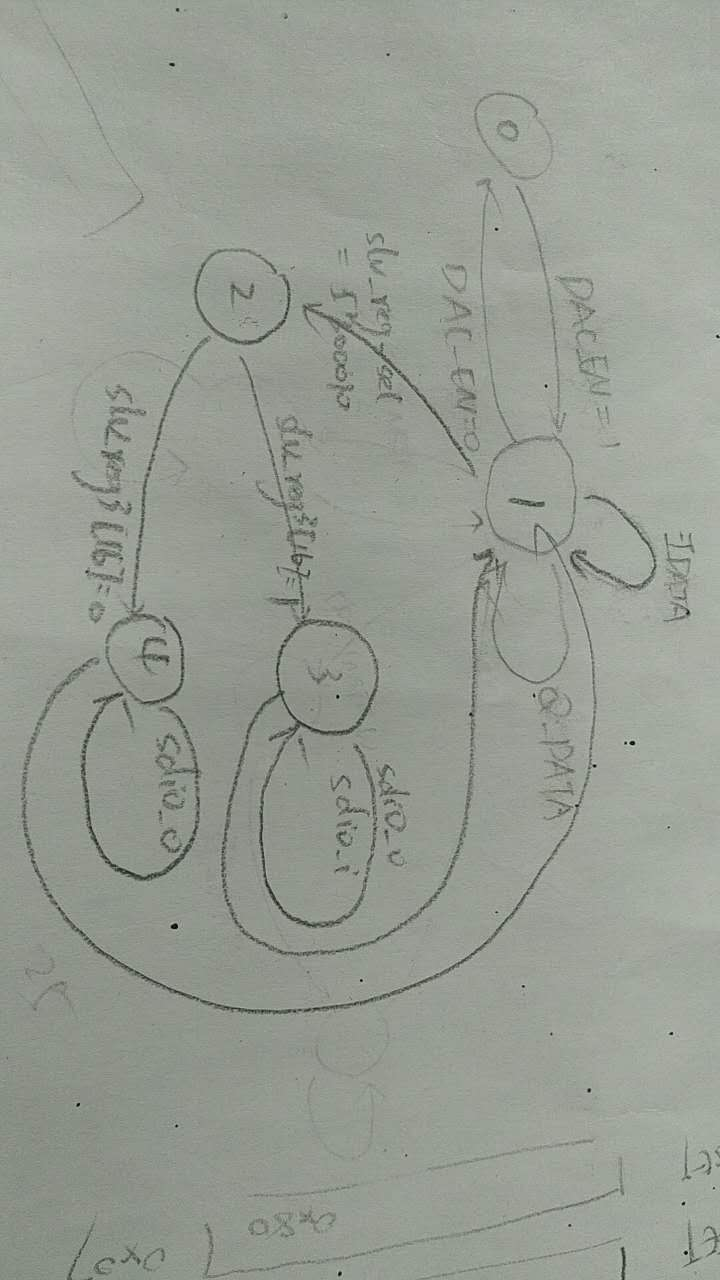 0
DAC_EN=1
DAC_EN=0
1
I_DATA
Q_DATA
slv_reg_sel
=
2
slv_reg3[16]=1
slv_reg3[16]=0
3
sdio_o
sdio_i
4
sdio_o
0x80